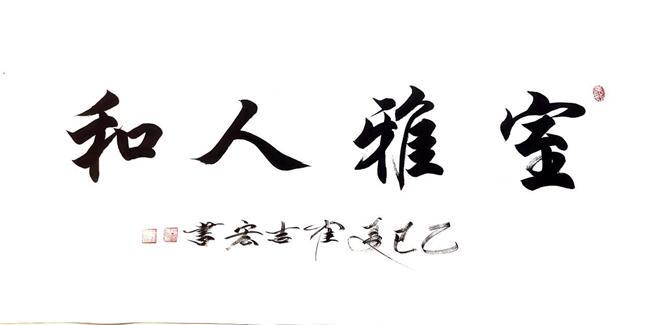 室雅人和
乙巳夏崔吉宏書